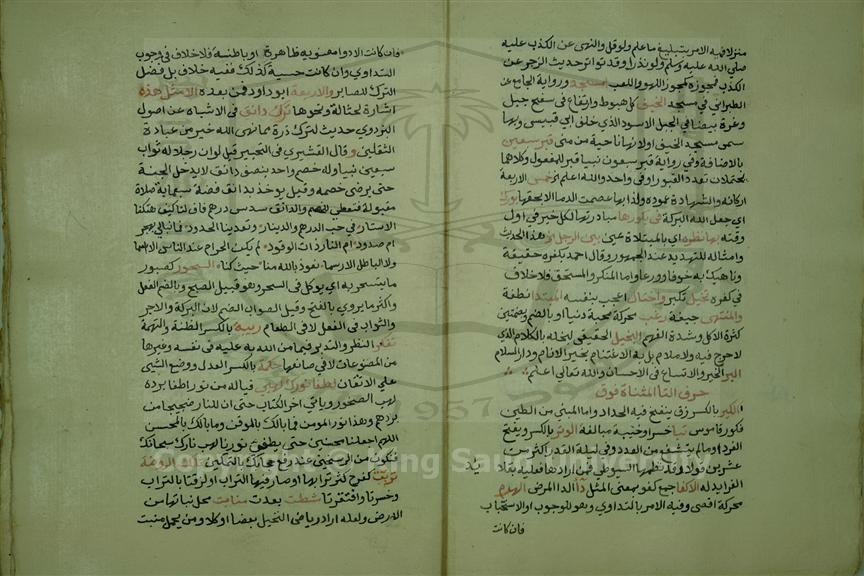 منزلا فيه الامر بتبليغ ما علم ولو قل والنهى عن الكذب عليه
صلى الله عليه وسلم ولو نذرا وقد تواتر حديث الزجر عن
الكذب فمجوزه كمجوز اللهو واللعب بمسجد ورواية الجامع عن
الطبراني في مسجد الخيف كما هبوط وارتفاع في سفح جبل
وغرة بيضا في الجبل الاسود الذي خلف ابي قبيس وبها
سمى مسجد الخيف اولانها ناحية من منى قبر سبعين
بالاضافة وفي رواية قبر سبعون نبيا قبر للمفعول وكلاهما
يحتملان تعدد القبور او في واحد والله اعلم خمس الاربعة
اركانه والشهادة عموده ولذا بها عصمت الدما الا بحقها بورك
اي جعل الله البركة في بكورها مبادرتها لكل خير في اول
وقته
وامثاله للتهديد عند الجمهور وقال احمد بكفره حقيقة
وناهيك به خوفا وورعا واما المنكر والمستحق فلا خلاف
في كفره تخيل تكبر واختال اعجب بنفسه المبتدا نطفة
والمنتهى جيفة رغب محركة محبة دنيا او بالضم وبضمتين
كثرة الاكل وشدة الفهم البخيل الحقيقي لبخله بالكلام الذي
لا حرج فيه ولا ملام بل به الاغتنام بخير الانام ودار السلام
البر الخير والاتساع في الاحسان والله تعالى اعلم
حرف التا المثناة فوق
الكير بالكسر زق ينفخ فيه الحداد واما المبني من الطين
فكور قاموس تبا خسرا وخيبة مبالغة الوتر بالكسر ويفتح
الفرد او ما لم يتشفع من العدد وفي ليلة القدر اكثر من
عشرين قولا وقد نظمها السيوطي فمن ارادها فعليه بقلائد
الفرايد له الاكفا جمع كفو بمعنى المثل داأ الدا المرض الهرم
محركة اقصى وفيه الامر بالتداوي وهو للوجوب او الاستحباب
فان كانت
فان كانت الادوا معنوية ظاهرة او باطنية فلا خلاف في وجوب
التداوي وان كانت حسية كذلك ففيه خلاف بل فضل
الترك للصابر والاربعة ابو داود فمن بعده الامثل هذه
اشارة لحثالة ونحوها ترك دانق في الاشباه عن اصول
البزدوي حديث لترك ذرة مما نهى الله خير من عبادة
الثقلين وقال القشيري في التحبير قيل لو ان رجلا له ثواب
سبعين نبيا وله خصم واحد بنصف دانق لا يدخل الجنة
حتى يرضى خصمه وقيل يوخذ بدانق فضة سبعماية صلاة
مقبولة فتعطى للخصم والدانق سدس درهم فاف لنا كيف هتكنا
الاستار في حب الدرهم والدينار وتعدينا الحدود
ام صدود ام النار ذات الوقود لم يكن الحرام عند الناس الا اسما
ولا الباطل الا رسما نعوذ بالله منا حيث كنا السحور كصبور
ما يتسحر به اي يوكل في السحر وهو قبيل الصبح وبالضم الفعل
واكثر ما يروى بالفتح وقيل الصواب الضم لان البركة والاجر
والثواب في الفعل لا في الطعام ريبة بالكسر الظنة والتهمة
تفكر النظر والتدبر فيما من الله به عليه في نفسه وغيرها
من المصنوعات لا في صانعها حكمة بالكسر العدل ووضع الشي
على الاتقان لطفا نورك لهبي فياله من نور اطفا برده
لهب الصخور وياتي اخر الكتاب حتى ان للنار ضجيجا من
بردهم وهذا نور المومن فما بالك بالموقن وما بالك بالمحسن
اللهم اجعلنا محسنين حتى يطفى نورنا لهب نارك سبحانك
فنكون من الرسميين
تربت كفرح كثر ترابها او صار فيها التراب او لزقتا بالتراب
وخسرتا وافتقرتا شطت بعدت منابت محل نباتها من
الارض ولعله اراد رياض النخيل بعضا او كلا ومن يحمل منبت